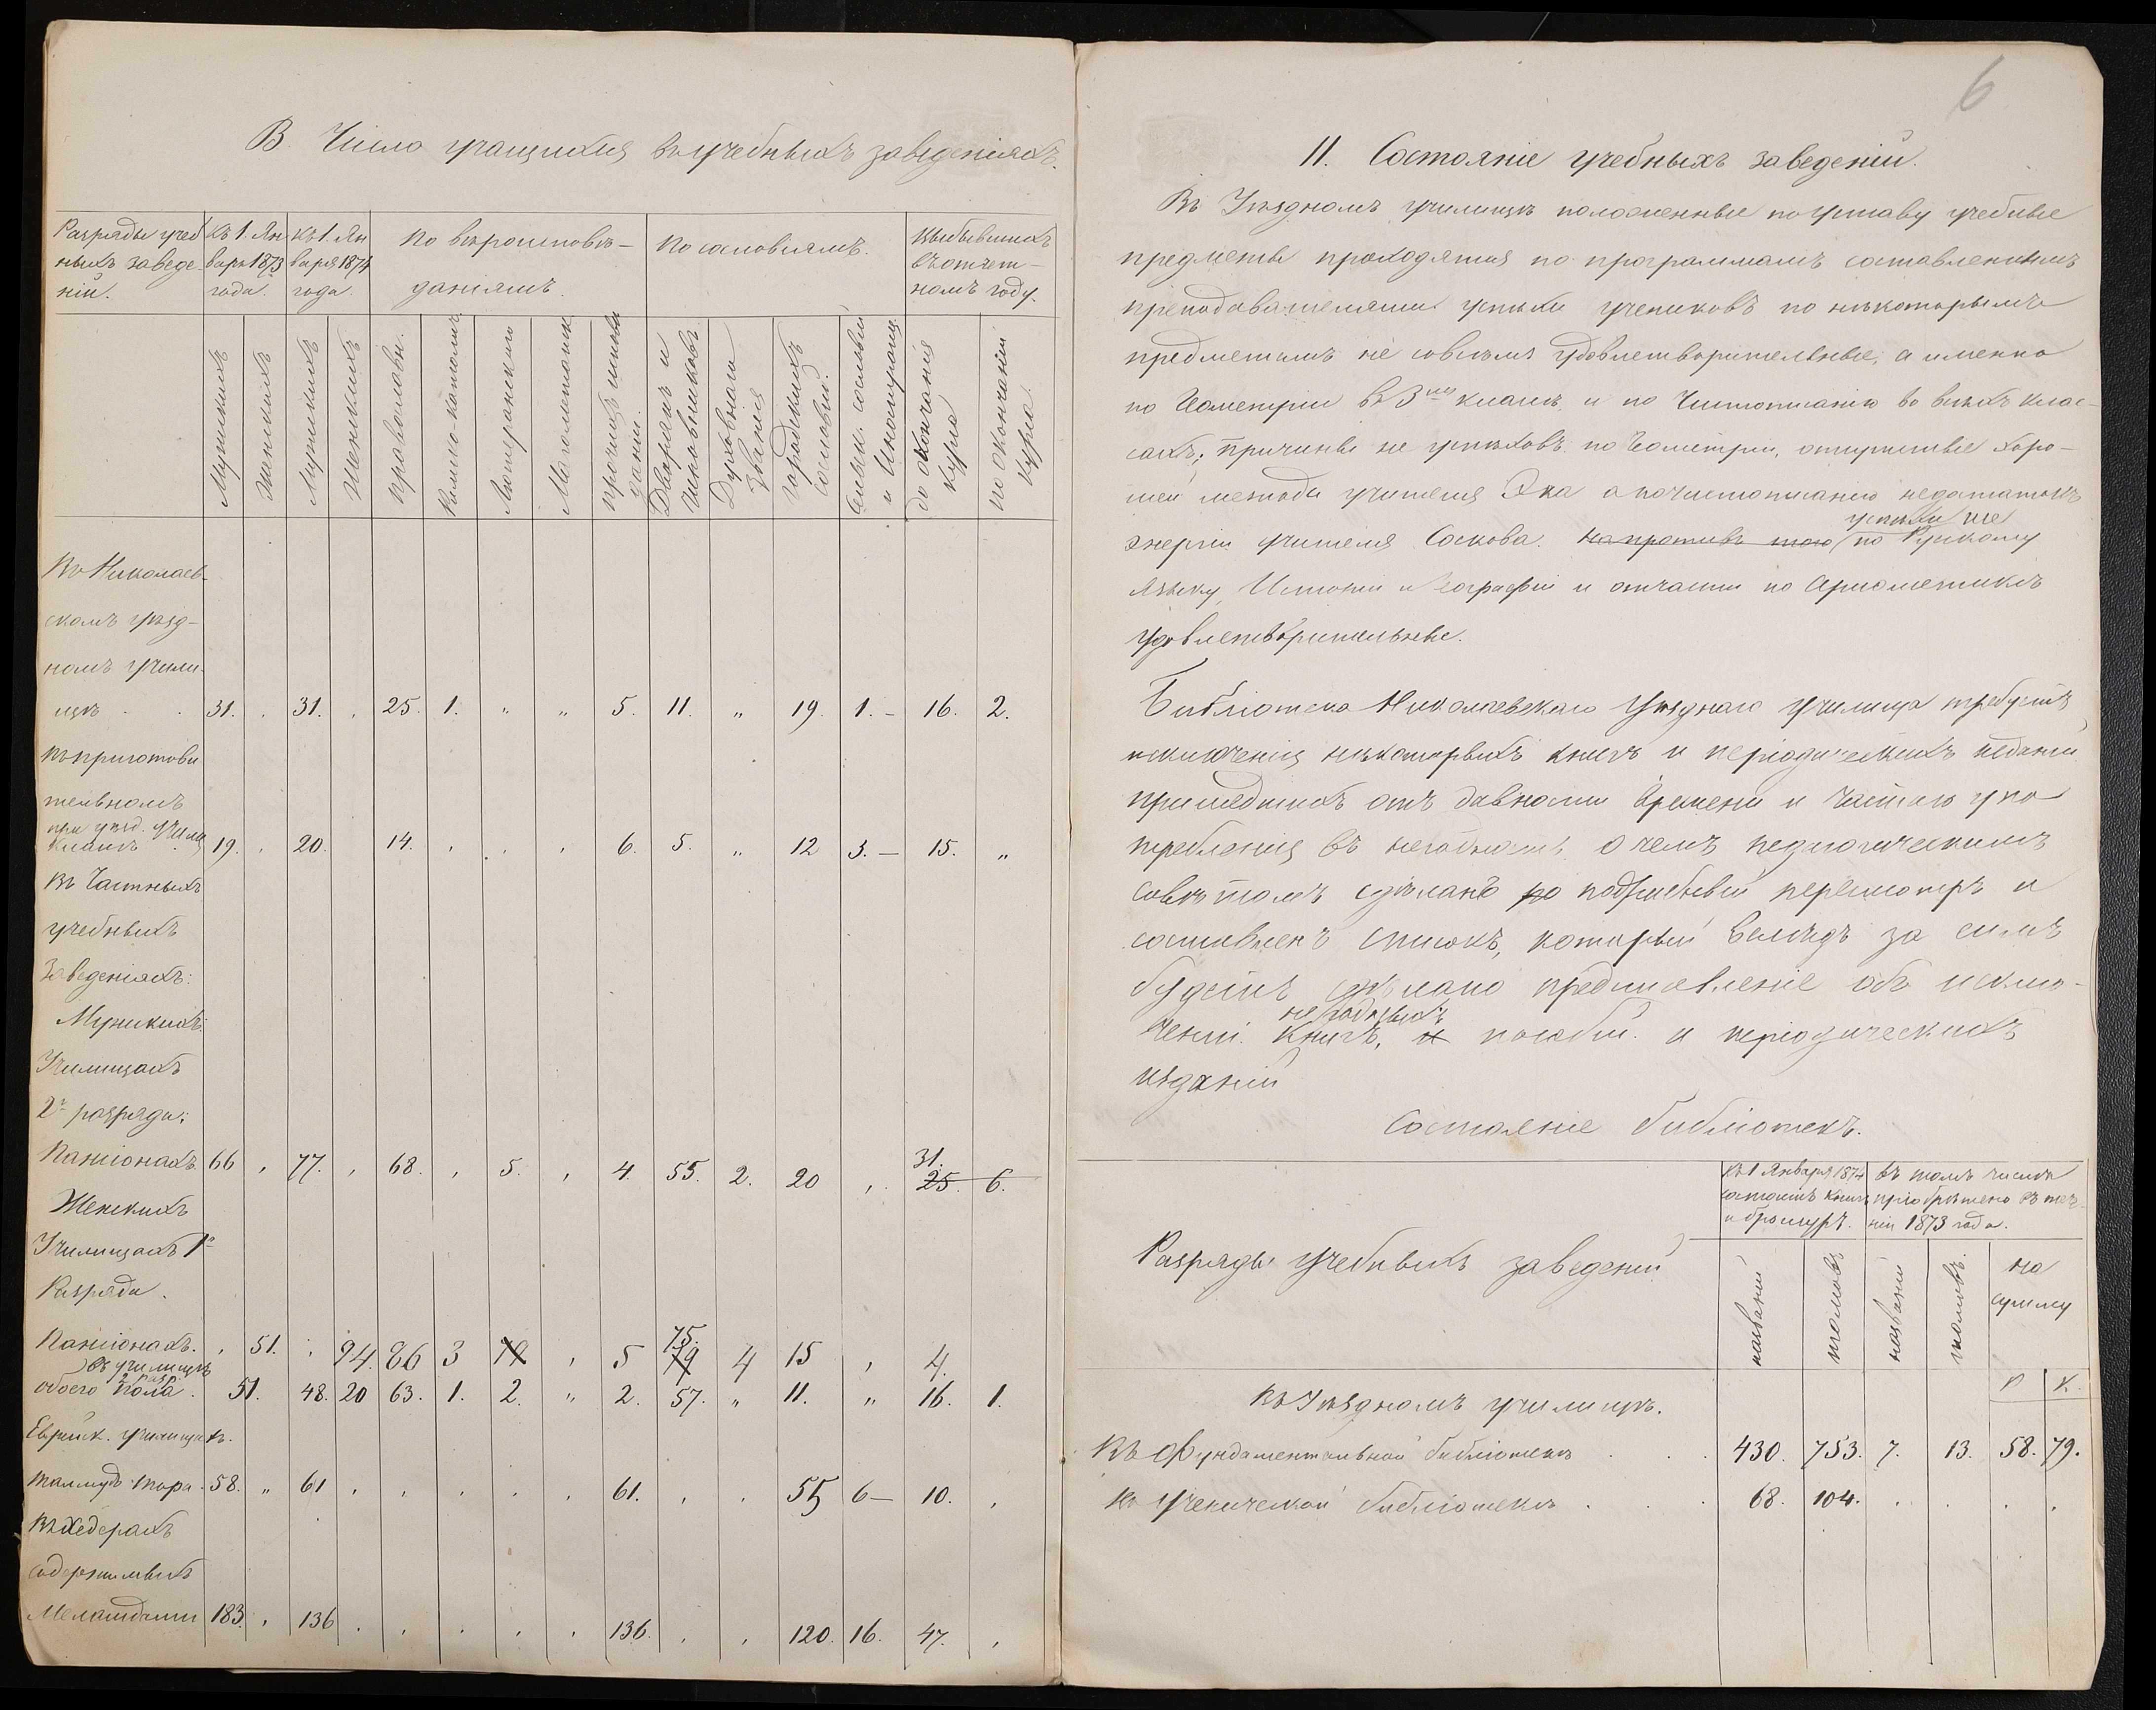 В Число учащихся въ учебныхъ заведеніяхъ.
Разряды учеб
ныхъ заведе
ній.
къ 1. Ян
варя 1873
года.
къ 1. Ян
варя 1874
года.
По вѣроисповѣ-
даніямъ.
По сословіямъ.
Выбывшихъ
въ отчет-
номъ году.
Мужскихъ
Женскихъ
Мужскихъ
Женскихъ
православн.
Римско-католик
Лютеранского
Магометанск
прочихъ исповѣ
даній.
Дворянъ и
чиновниковъ
Духовнаго
званія
городскихъ
сословій.
сельск. сословій
и Иностранц
до окончанія
курса
по окончаніи
курса
Въ Николаев-
скомъ уѣзд-
номъ учили-
щѣ 31. . 31. . 25. 1. „ „ 5. 11. „ 19. 1.- 16. 2.
въ приготови
тельномъ
при уѣзд. училищ
классѣ 19. . 20. 14. . . . 6. 5. „ 12 3.- 15. „
въ Частныхъ
учебныхъ
Заведеніяхъ:
Мужскихъ
Училищахъ
2го разряда:
Пансіонахъ. 66 . 77. . 68. . 5. . 4. 55. 2. 20 . 31. 25. 6.
Женскихъ
Училищахъ 1го
Разряда.
Пансіонахъ. . 51. . 94. 86 3 . 5 75. 79 4 15 . 4.
Въ училищѣ
2 разр.
обоего пола. 51. 48. 20 63. 1. 2. „ 2. 57. „ 11. „ 16. 1.
Еврейск. училищѣ.
талмудъ-тора. 58. „ 61 . . . . . 61. . . 55 6- 10. .
въ хедерахъ
содержимыхъ
Меламдами 183. . 136 . . . . . 136. . . 120. 16. 47. .
6
II. Состояніе учебныхъ заведеній.
Въ Уѣздномъ училищѣ положенные по уставу учебные
предметы проходятся по программамъ составленнымъ
преподавателями успѣхи учениковъ по нѣкоторымъ
предметамъ не совсѣмъ удовлетворительные, а именно
по Геометріи въ 3мъ классѣ и по Чистописанію во всѣхъ клас-
сахъ; Причины не успѣховъ по Геометріи, отсутствіе хоро-
шей методы учителя Эка а по чистописанію недостатокъ
энергіи учителя Соскова. Напротивъ того успѣхи же по Русскому
языку, Исторіи и Географіи и отчасти по Ариѳметикѣ
удовлетворительные.
Библіотека Николаевскаго Уѣзднаго училища требуетъ
исключенія нѣкоторыхъ книгъ и періодическихъ изданій
пришедшихъ отъ давности времени и частаго упо
требленія въ негодность, о чемъ педагогическимъ
совѣтомъ сдѣланъ подробный пересмотръ и
составленъ списокъ, который вслѣдъ за симъ
будетъ сдѣлано представленіе объ исклю-
ченіи негодныхъ книгъ, и пособій. и періодическихъ
изданій
Состояніе библіотекъ.
Разряды учебныхъ заведеній
къ 1 Января 1874
состоитъ книгъ
и брошуръ.
въ томъ числѣ
пріобрѣтено въ тече
ніи 1873 года.
названій
томовъ
названій
томовъ.
на
сумму
Р К.
Въ Уѣздномъ училищѣ.
Въ Фундаментальной библіотекѣ . . . 430. 753. 7. 13. 58. 79.
въ ученической библіотекѣ . . . 68. 104. . . . .